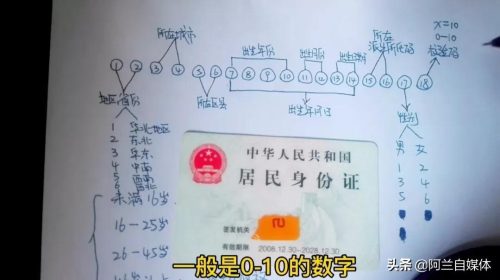 x=10
0-10
校验码
所在城市
出生年份
出生月份
出生日期
所在
派出所代码
1 2 3 4 5 6 7 8 9 10 11 12 13 14 15 16 17 18
地区省份
所在区县
出生年月日
性别
男 女
1 华北地区
2 东北
3 华东
4 中南
5 西南
6 西北
1 2
3 4
5 6
未满16岁
16-25岁
26-45岁
中华人民共和国
居民身份证
签发机关
有效期限 2008.12.30-2028.12.30
一般是0-10的数字
头条 @阿兰自媒体